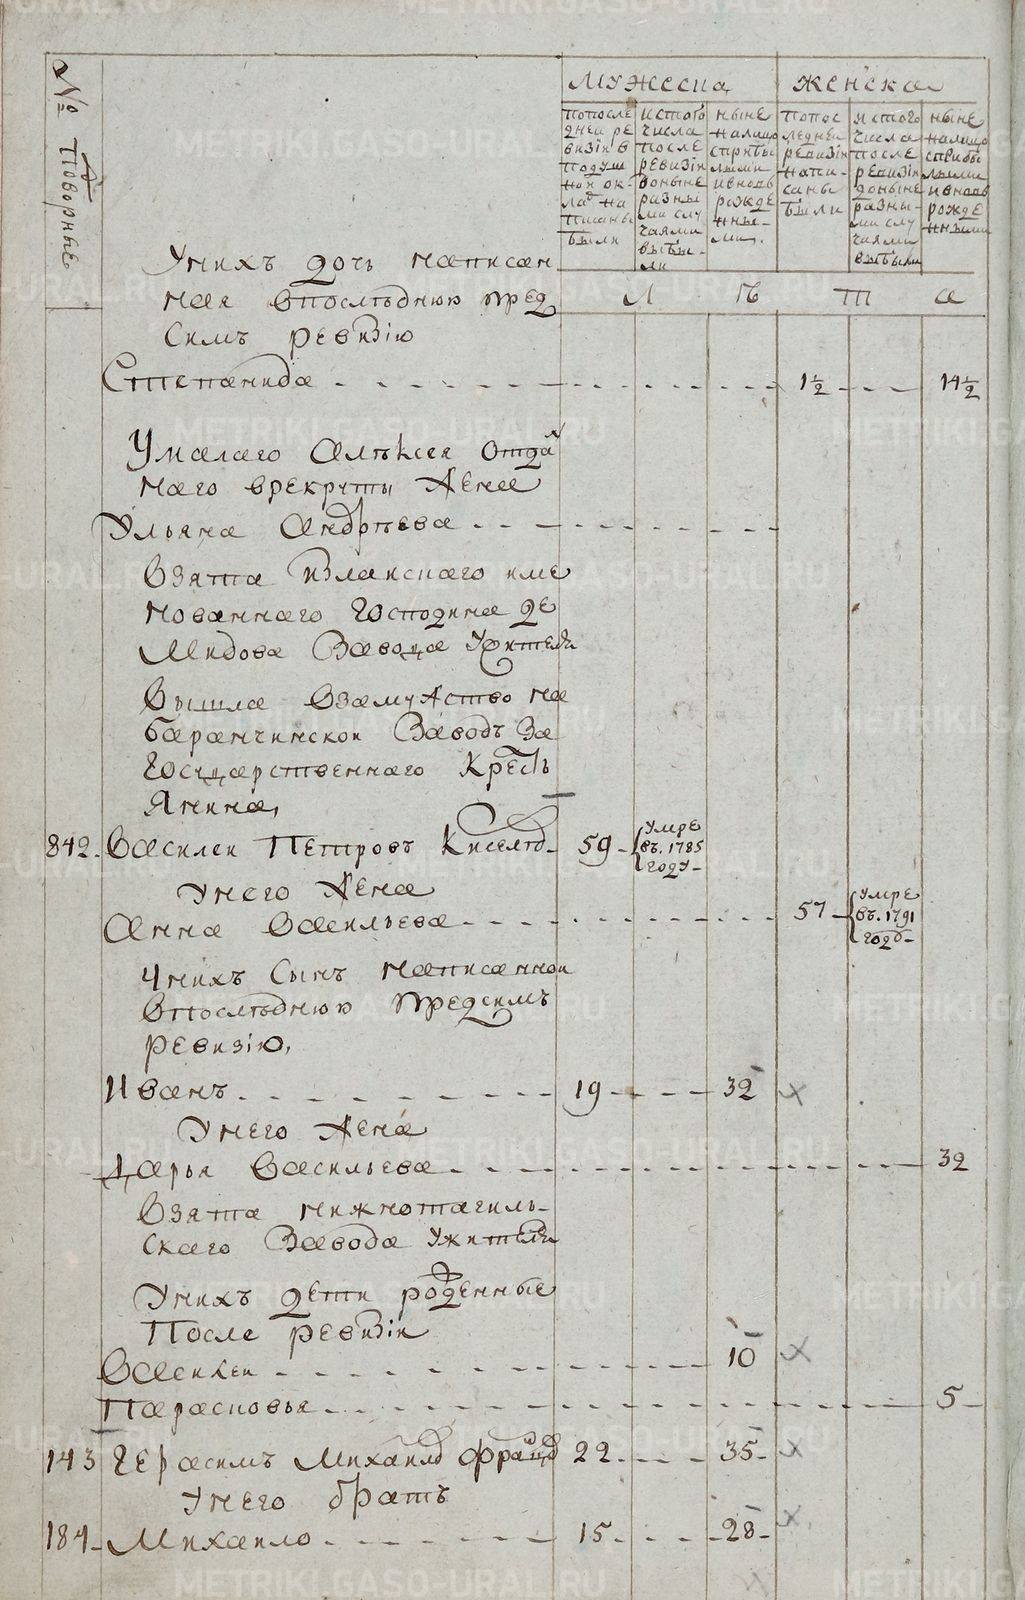 № подворные
мужеска
женска
по после
дней ре
визіи в
подуш
ной ок-
ладъ на
писаны
были
ис того
числа
после
ревизіи
до ныне
разны
ми слу
чаями
выбы-
ли
ныне
на лицо
с прибы
лыми
и вновь
рожде
нны-
ми.
по пос
ледней
ревизіи
напи-
саны
были
ис того
числа
после
ревизіи
до ныне
разны-
ми слу
чаями
выбыли
ныне
на лицо
с прибы
лыми
и вновь
рожде
нными
Л ѣ т а
У нихъ дочь написан
ная в последнюю пред
симъ ревизію
Степанида 1½ 14½
У малаго Алѣксея отда
наго в рекруты жена
Ульяна Андрѣева
Взята
нованнаго господина де
мидова завода у жителя
вышла в замужство на
баранчинской заводъ за
государственнаго кресть
янина,
842 Василей Петровъ Киселев 59 умре
въ. 1785
году
У него жена
Анна Васильева 57 умре
въ. 1791
годъ
У нихъ сынъ написанной
в последнюю предсимъ
ревизію,
Иванъ 19 32 х
У него жена
Дарья Васильева 32
Взята нижнотагиль-
скаго завода у жителя
У нихъ дети рожденные
После ревизіи
Василей 10 х
Парасковья 5
143 Герасимъ Михаилов 22 35 х
У него братъ
184 Михаило 15 28 х
METRIKI.GASO-URAL.RU